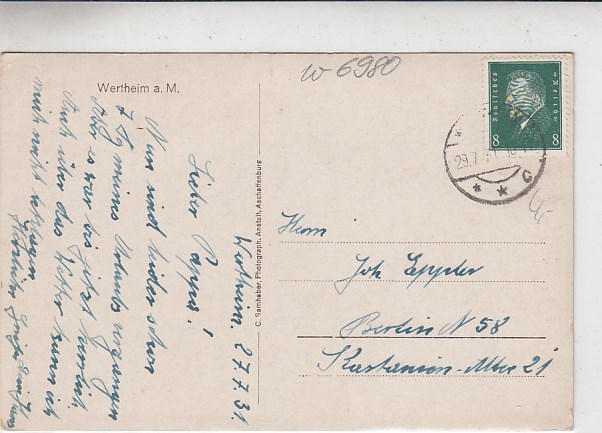 w 6980
Wertheim a. M.
Deutsches Reich
8 8
29.7.
* * C
Wertheim, 27.7.31.
Lieber Pappa!
Nun sind leider schon
7 Tg meines Urlaubs vergangen
Aber es war bis jetzt herrlich
Auch über das Wetter kann ich
mich nicht beklagen
Herzliche Grüße Dein Hans
C. Samhaber, Photograph. Anstalt, Aschaffenburg
Herrn
Joh. Eppler
Berlin N 58
Kastanien-Allee 21